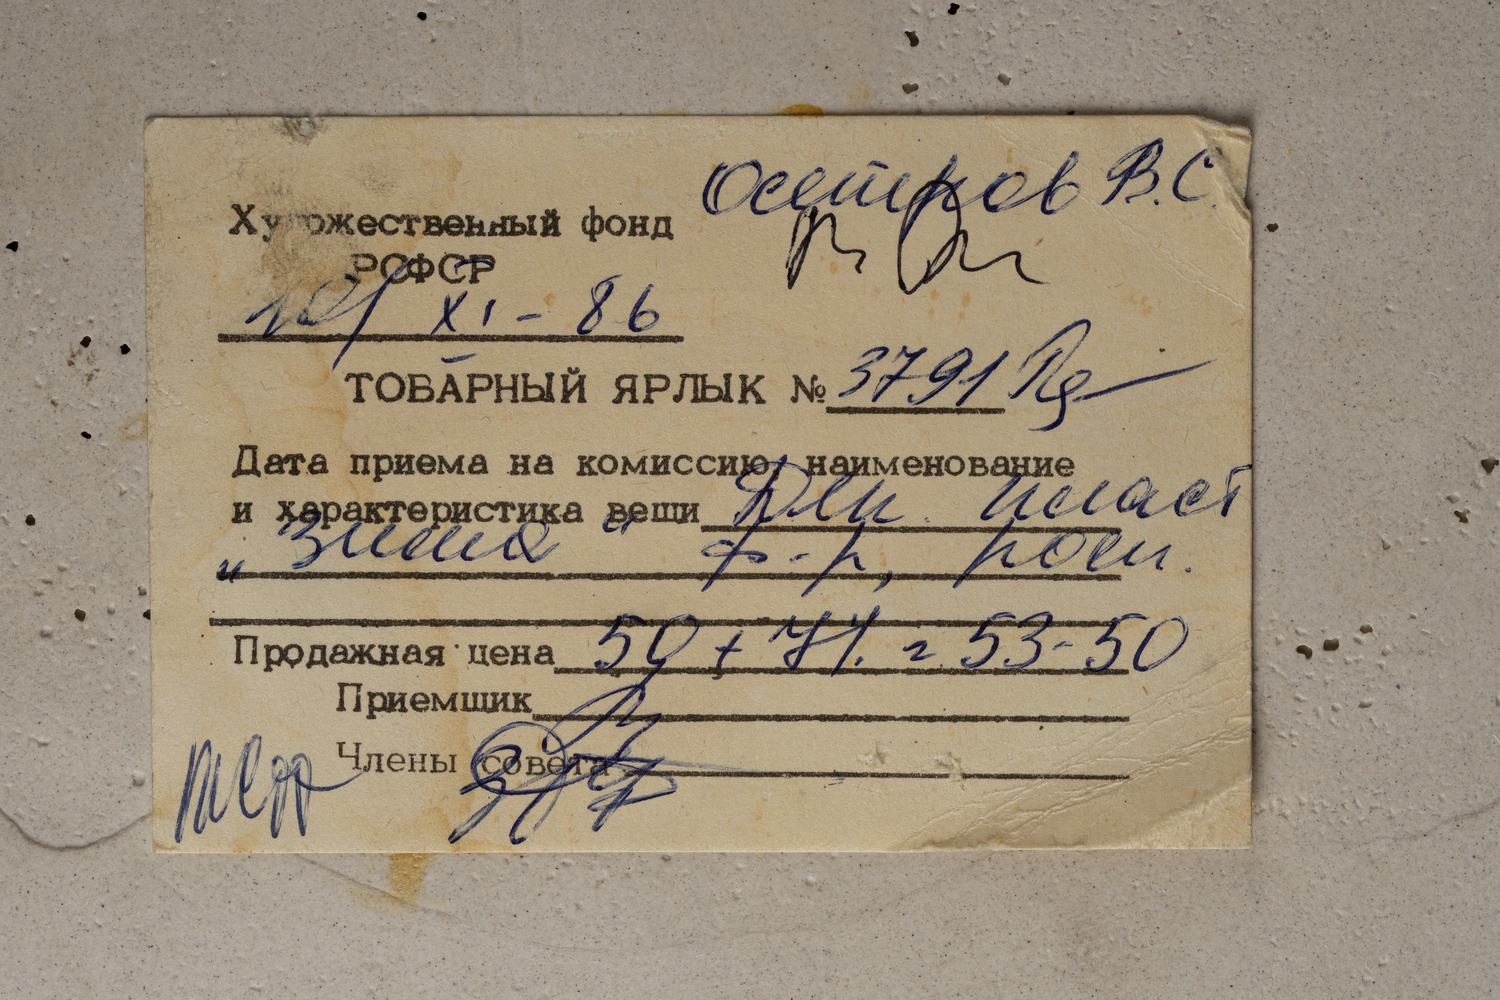 Осетров В.С.
Художественный фонд
РСФСР
XI - 86
ТОВАРНЫЙ ЯРЛЫК № 3791
Дата приема на комиссию, наименование
и характеристика вещи Дек. пласт
„Зима" ф-р, росп.
Продажная цена 50 + 7%. = 53-50
Приемщик
Члены совета